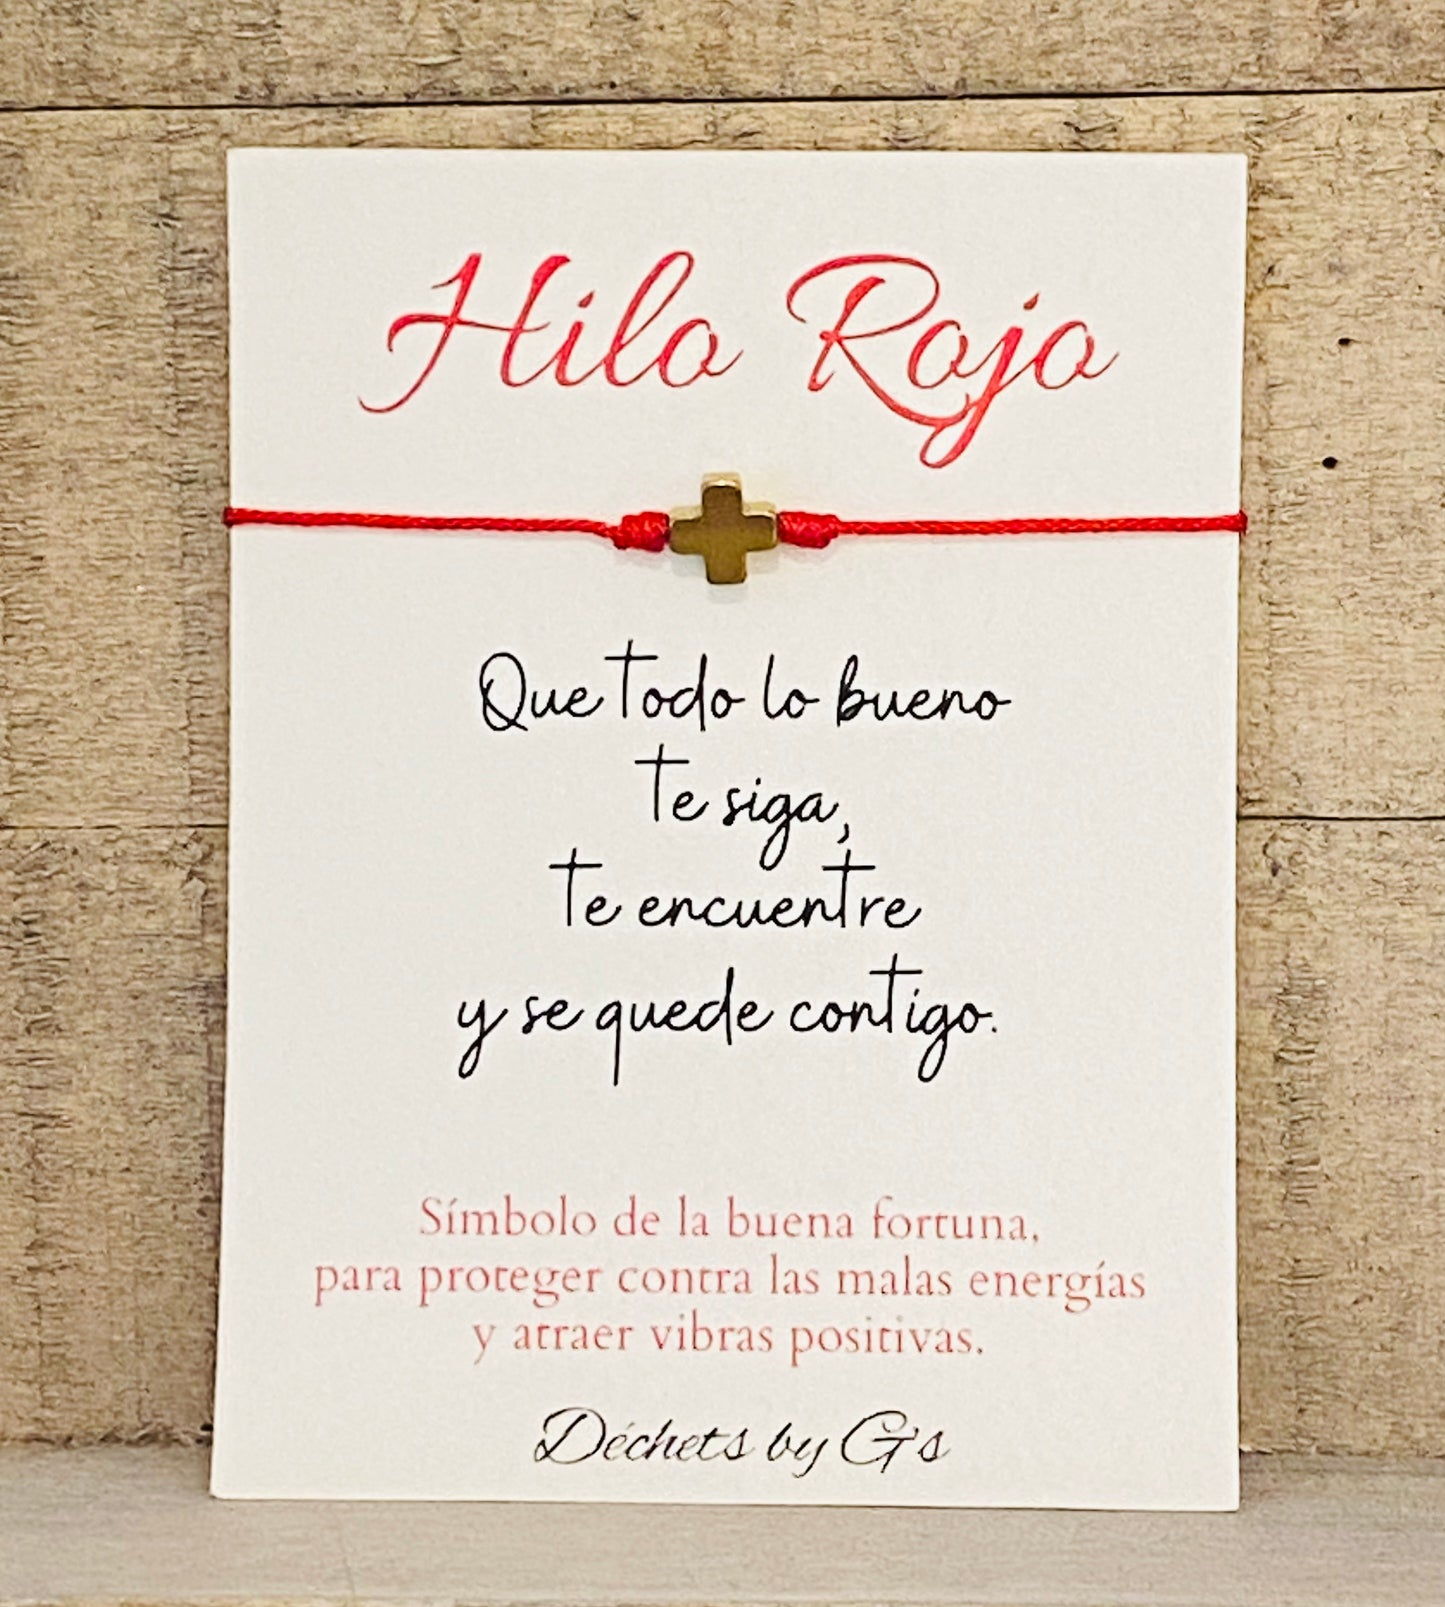 Hilo Rojo
Que todo lo bueno
te siga,
te encuentre
y se quede contigo.
Símbolo de la buena fortuna,
para proteger contra las malas energías
y atraer vibras positivas.
Déchets by G's